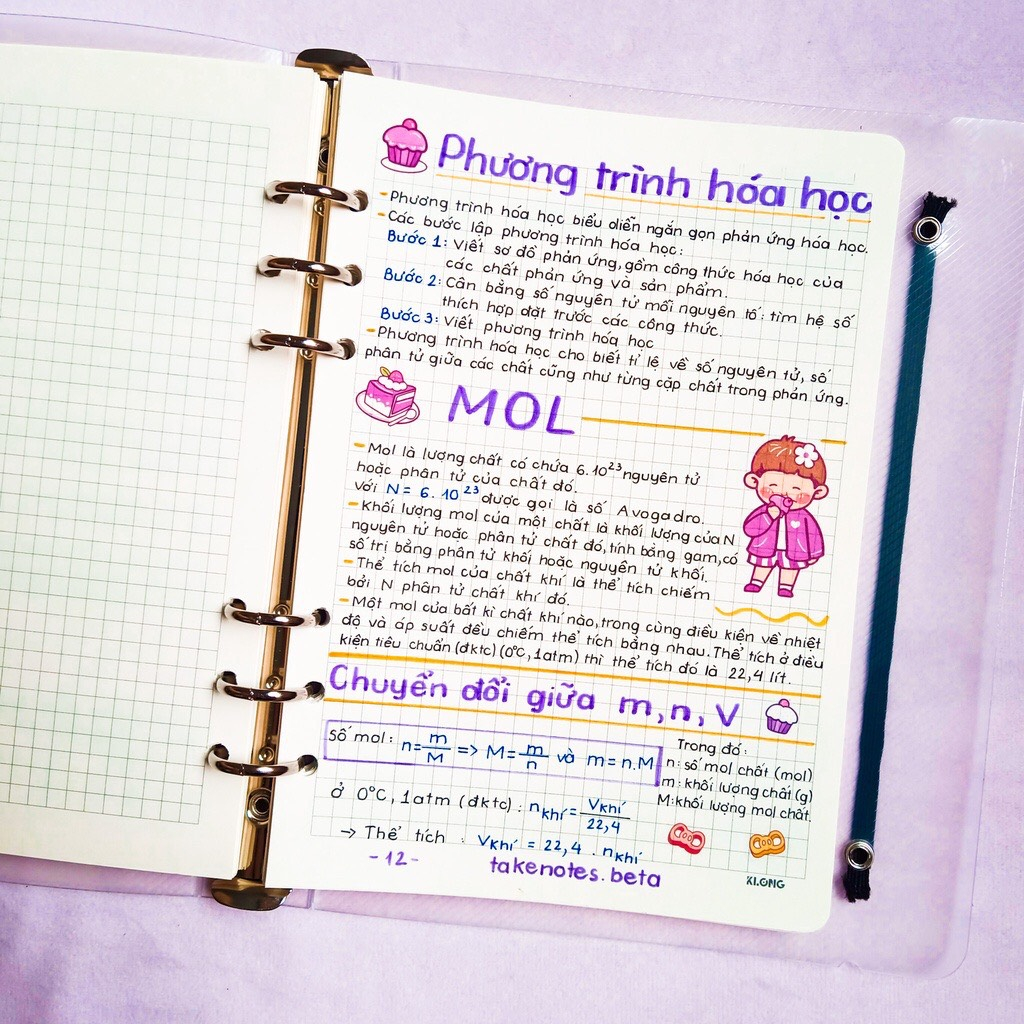 Phương trình hóa học
- Phương trình hóa học biểu diễn ngắn gọn phản ứng hóa học.
- Các bước lập phương trình hóa học:
Bước 1: Viết sơ đồ phản ứng, gồm công thức hóa học của
các chất phản ứng và sản phẩm.
Bước 2: Cân bằng số nguyên tử mỗi nguyên tố: tìm hệ số
thích hợp đặt trước các công thức.
Bước 3: Viết phương trình hóa học
- Phương trình hóa học cho biết tỉ lệ về số nguyên tử, số
phân tử giữa các chất cũng như từng cặp chất trong phản ứng.
MOL
- Mol là lượng chất có chứa 6.10²³ nguyên tử
hoặc phân tử của chất đó.
với N = 6.10²³ được gọi là số Avogadro.
- Khối lượng mol của một chất là khối lượng của N
nguyên tử hoặc phân tử chất đó, tính bằng gam, có
số trị bằng phân tử khối hoặc nguyên tử khối.
- Thể tích mol của chất khí là thể tích chiếm
bởi N phân tử chất khí đó.
- Một mol của bất kì chất khí nào, trong cùng điều kiện về nhiệt
độ và áp suất đều chiếm thể tích bằng nhau. Thể tích ở điều
kiện tiêu chuẩn (đktc) (0°C, 1atm) thì thể tích đó là 22,4 lít.
Chuyển đổi giữa m, n, V
số mol: n = m/M => M = m/n và m = n.M
Trong đó:
n: số mol chất (mol)
m: khối lượng chất (g)
M: khối lượng mol chất.
ở 0°C, 1atm (đktc): nkhí = Vkhí/22,4
→ Thể tích : Vkhí = 22,4 . nkhí
- 12 -
takenotes.beta
KLONG